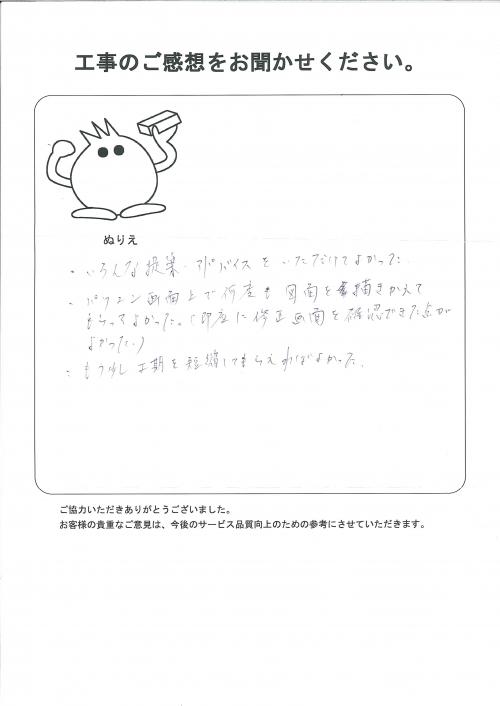 工事のご感想をお聞かせください。
ぬりえ
・いろんな提案・アドバイスをいただけてよかった.
・パソコン画面上で何度も図面を描きかえて
もらってよかった。(即座に修正画面を確認できた点が
よかった。)
・もう少し工期を短縮してもらえればよかった.
ご協力いただきありがとうございました。
お客様の貴重なご意見は、今後のサービス品質向上のための参考にさせていただきます。